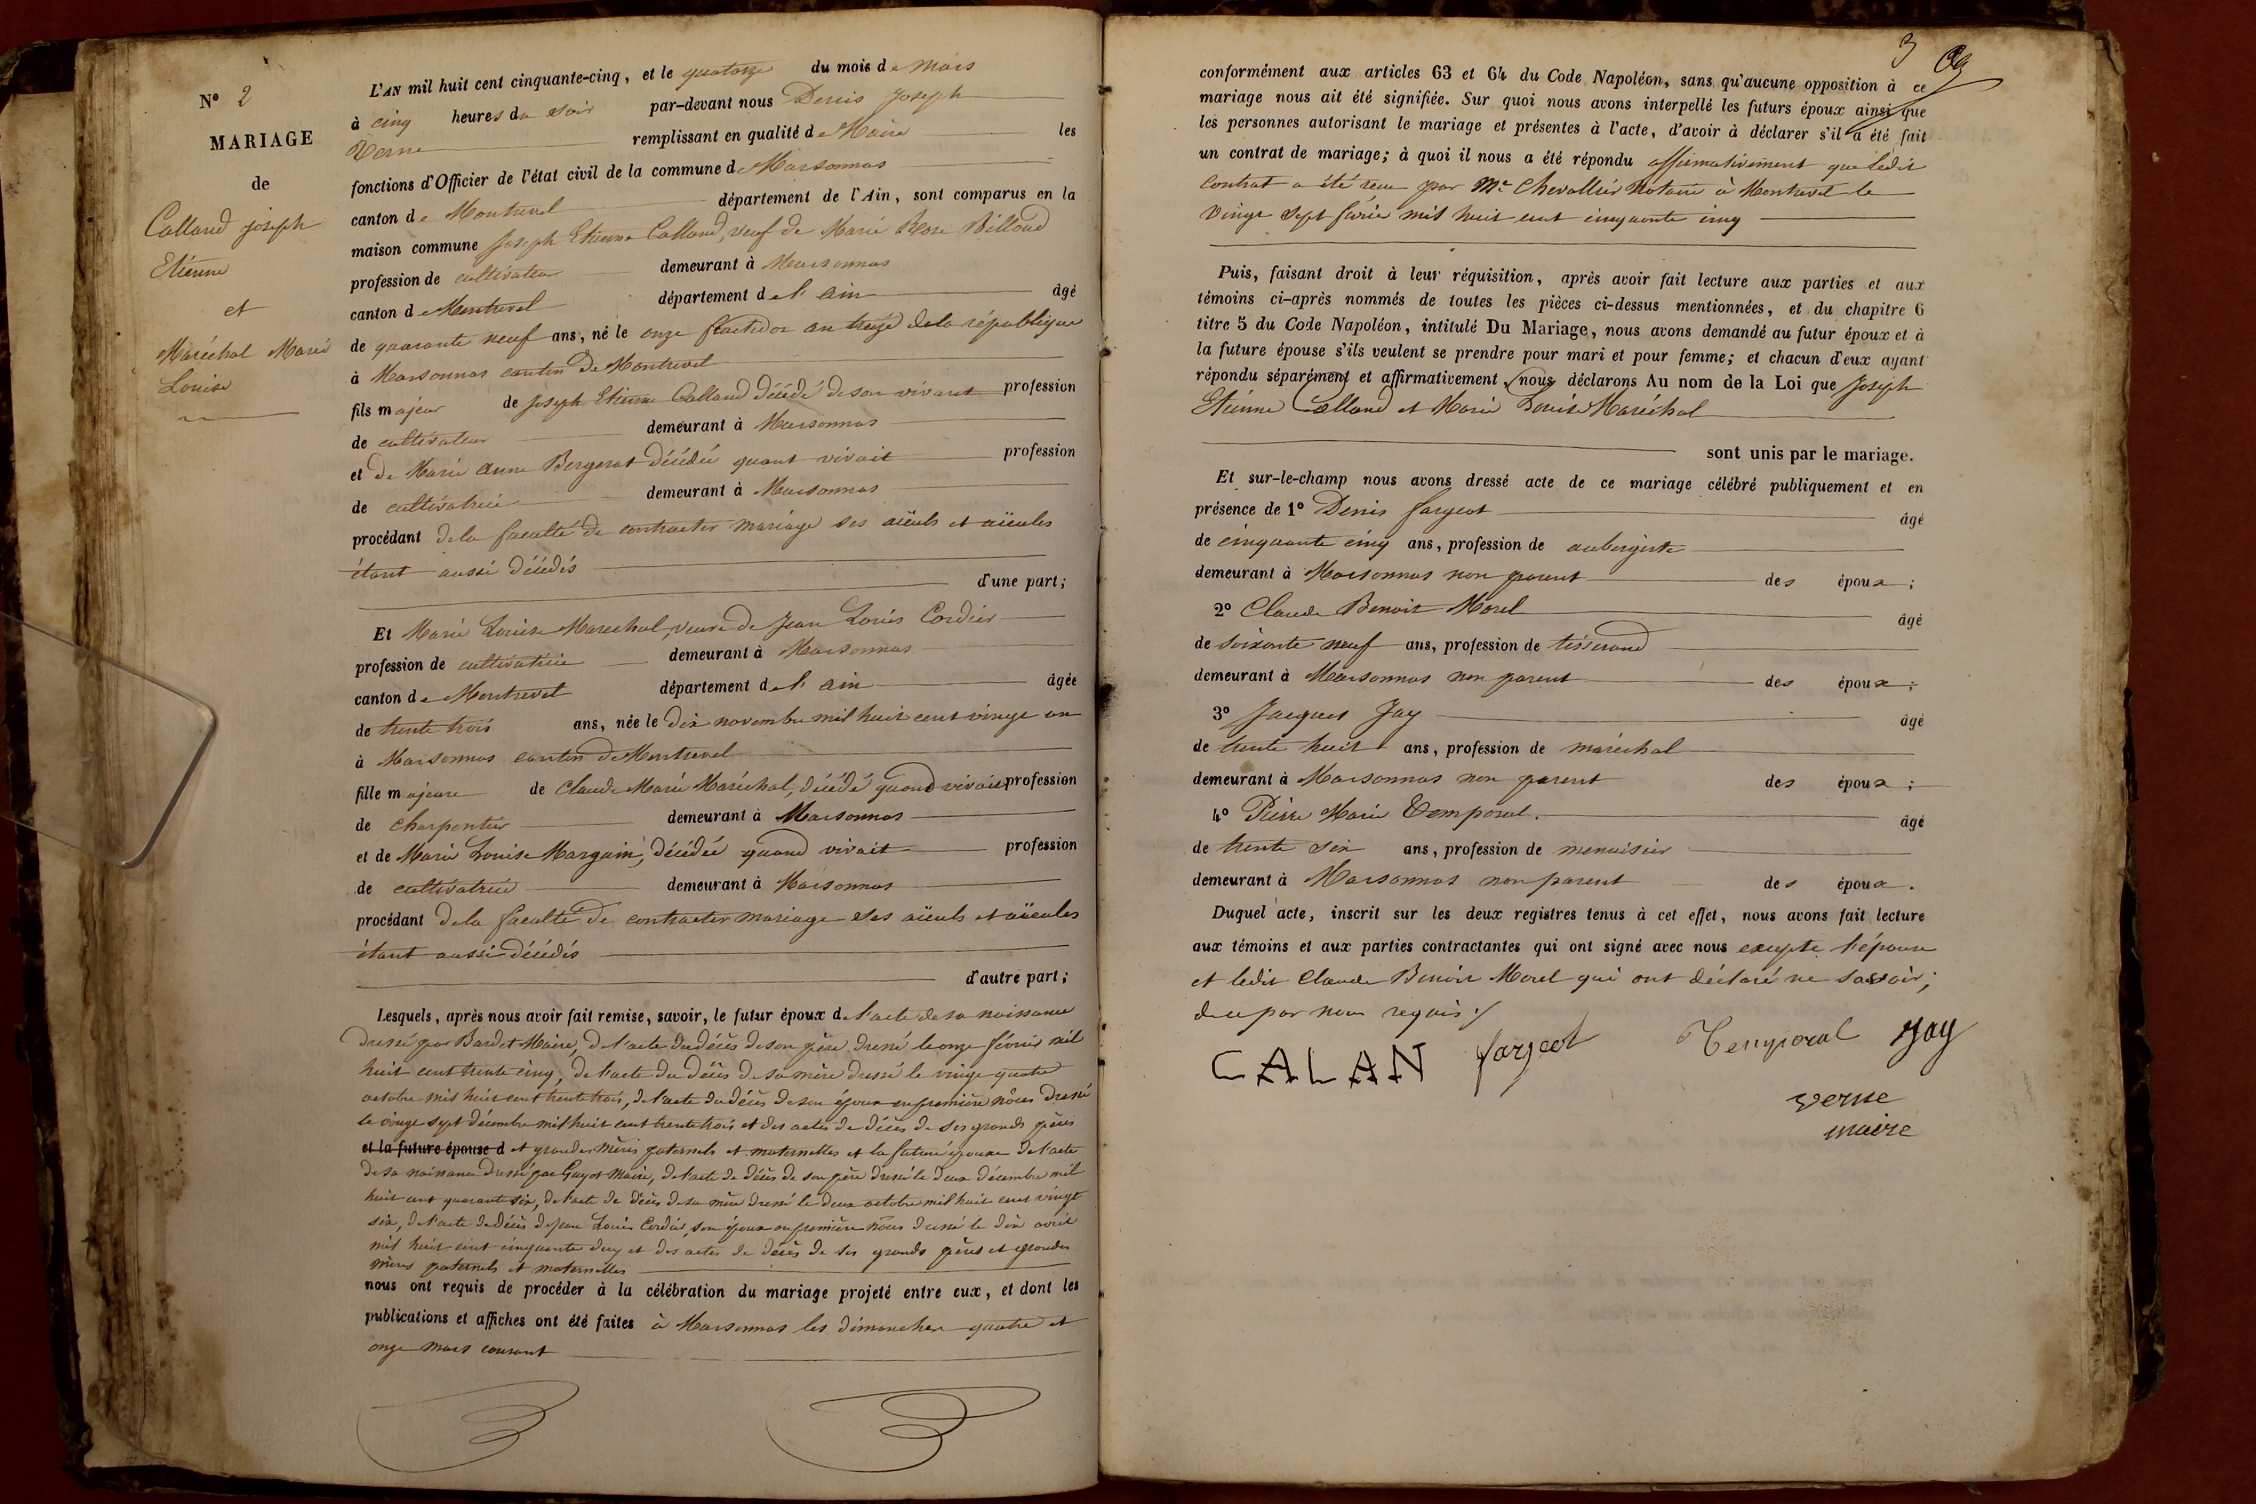 N° 2
MARIAGE
de
Calland joseph
Etienne
et
Maréchal Marie
Louise
L'AN mil huit cent cinquante-cinq, et le quatorze du mois de Mars
à cinq heures du soir par-devant nous Denis Joseph
Verne remplissant en qualité de Maire les
fonctions d'Officier de l'état civil de la commune de Marsonnas
canton de Montrevel département de l'Ain, sont comparus en la
maison commune Joseph Etienne Calland, veuf de Marie Rose Billoud
profession de cultivateur demeurant à Marsonnas
canton de Montrevel département de l'ain âgé
de quarante neuf ans, né le onze fructidor an treize de la république
à Marsonnas canton de Montrevel
fils majeur de Joseph Etienne Calland décédé de son vivant profession
de cultivateur demeurant à Marsonnas
et de Marie Anne Bergerat décédée quant vivait profession
de cultivatrice demeurant à Marsonnas
procédant de la faculté de contracter mariage ses aïeuls et aïeules
étant aussi décédés
d'une part;
Et Marie Louise Marechal, veuve de Jean Louis Cordier
profession de cultivatrice demeurant à Marsonnas
canton de Montrevel département de l'ain âgée
de trente trois ans, née le dix novembre mil huit cent vingt un
à Marsonnas canton de Montrevel
fille majeure de Claude Marie Maréchal, décédé quand vivait profession
de charpentier demeurant à Marsonnas
et de Marie Louise Margain, décédée quand vivait profession
de cultivatrice demeurant à Marsonnas
procédant de la faculté de contracter mariage ses aïeuls et aïeules
étant aussi décédés
d'autre part;
Lesquels, après nous avoir fait remise, savoir, le futur époux de l'acte de sa naissance
dressé par Bardet Maire, de l'acte du décès de son père dressé le onze février mil
huit cent trente cinq, de l'acte du décès de sa mère dressé le vingt quatre
octobre mil huit cent trente trois, de l'acte du décès de son épouse en première nôces dressé
le vingt sept décembre mil huit cent trente trois et des actes de décès de ses grands pères
et la future épouse d et grandes mères paternels et maternelles et la future épouse de l'acte
de sa naissance dressé par Guyot Maire, de l'acte de décès de son père dressé le deux décembre mil
huit cent quarante six, de l'acte de décès de sa mère dressé le deux octobre mil huit cent vingt
six, de l'acte de décès de Jean Louis Cordier, son époux en première nôces dressé le dix avril
mil huit cent cinquante deux et des actes de décès de ses grands pères et grandes
mères paternels et maternelles
nous ont requis de procéder à la célébration du mariage projeté entre eux, et dont les
publications et affiches ont été faites à Marsonnas les dimanches quatre et
onze mars courant
3
conformément aux articles 63 et 64 du Code Napoléon, sans qu'aucune opposition à ce
mariage nous ait été signifiée. Sur quoi nous avons interpellé les futurs époux ainsi que
les personnes autorisant le mariage et présentes à l'acte, d'avoir à déclarer s'il a été fait
un contrat de mariage; à quoi il nous a été répondu affirmativement que ledit
contrat a été reçu par Me Chevallier Notaire à Montrevel le
vingt sept février mil huit cent cinquante cinq
Puis, faisant droit à leur réquisition, après avoir fait lecture aux parties et aux
témoins ci-après nommés de toutes les pièces ci-dessus mentionnées, et du chapitre 6
titre 5 du Code Napoléon, intitulé Du Mariage, nous avons demandé au futur époux et à
la future épouse s'ils veulent se prendre pour mari et pour femme; et chacun d'eux ayant
répondu séparément et affirmativement, nous déclarons Au nom de la Loi que Joseph
Etienne Calland et Marie Louise Maréchal
sont unis par le mariage.
Et sur-le-champ nous avons dressé acte de ce mariage célébré publiquement et en
présence de 1° Denis fargeot âgé
de cinquante cinq ans, profession de aubergiste
demeurant à Marsonnas non parent des époux;
2° Claude Benoit Morel âgé
de soixante neuf ans, profession de tisserand
demeurant à Marsonnas non parent des époux;
3° Jacques Jay âgé
de trente huit ans, profession de maréchal
demeurant à Marsonnas non parent des époux;
4° Pierre Marie Temporal. âgé
de trente six ans, profession de menuisier
demeurant à Marsonnas non parent des époux.
Duquel acte, inscrit sur les deux registres tenus à cet effet, nous avons fait lecture
aux témoins et aux parties contractantes qui ont signé avec nous excepté l'épouse
et ledit Claude Benoit Morel qui ont déclaré ne savoir;
de ce par nous requis
CALAN fargeot Temporal Jay
verne
maire